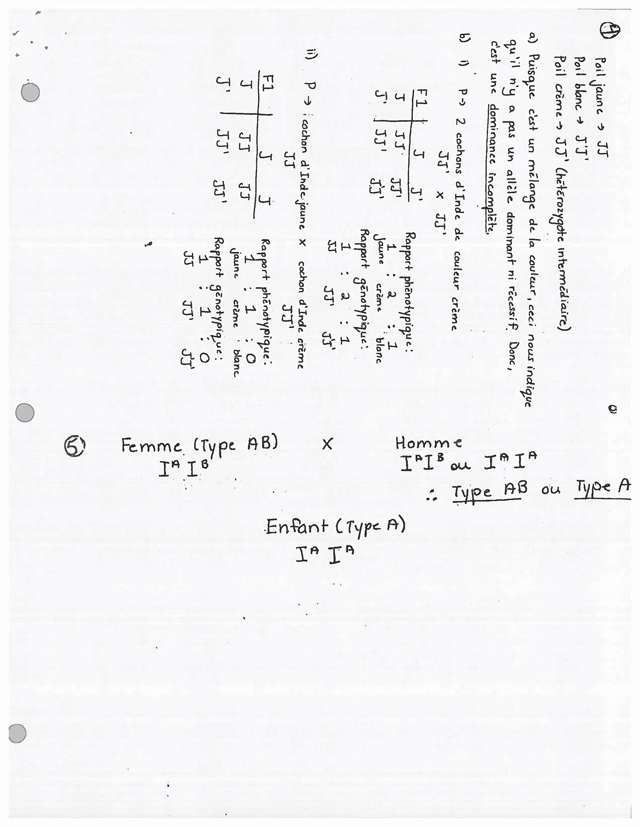 4)
Poil jaune → JJ
Poil blanc → J'J'
Poil crème → JJ' (hétérozygote intermédiaire)
a) Puisque c'est un mélange de la couleur, ceci nous indique
qu'il n'y a pas un allèle dominant ni récessif. Donc,
c'est une dominance incomplète.
b) i) P → 2 cochons d'Inde de couleur crème
JJ' x JJ'
F1 J J'
J JJ JJ'
J' JJ' J'J'
Rapport phénotypique:
1 : 2 : 1
jaune crème blanc
Rapport génotypique:
1 : 2 : 1
JJ JJ' J'J'
ii) P → 1 cochon d'Inde jaune x cochon d'Inde crème
JJ JJ'
F1 J J
J JJ JJ
J' JJ' JJ'
Rapport phénotypique:
1 : 1 : 0
jaune crème blanc
Rapport génotypique:
1 : 1 : 0
JJ JJ' J'J'
5) Femme (Type AB) x Homme
I^A I^B I^A I^B ou I^A I^A
∴ Type AB ou Type A
Enfant (Type A)
I^A I^A